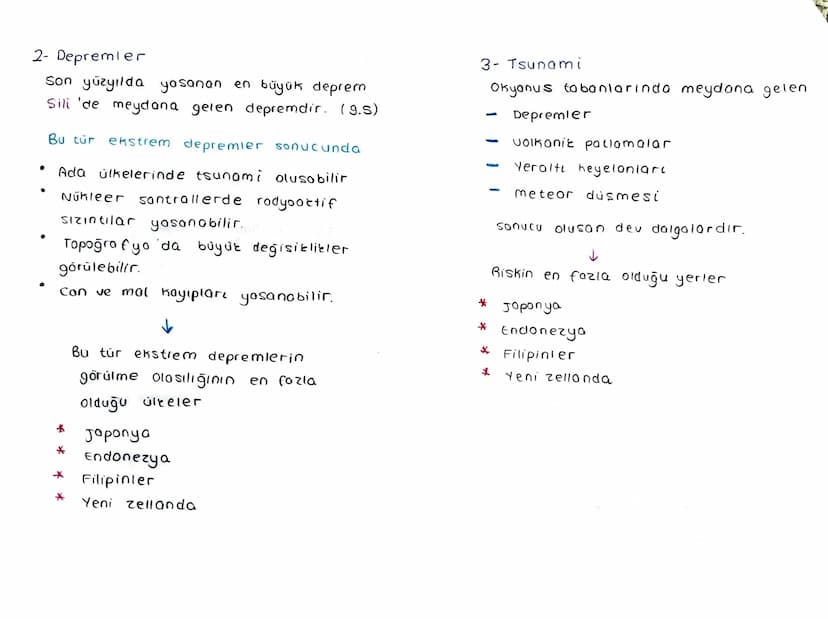 2- Depremler
Son yüzyılda yaşanan en büyük deprem
Şili'de meydana gelen depremdir. (9.5)
Bu tür ekstrem depremler sonucunda
• Ada ülkelerinde tsunami oluşabilir
• Nükleer santrallerde radyoaktif
sızıntılar yaşanabilir.
• Topoğrafya'da büyük değişiklikler
görülebilir.
• Can ve mal kayıpları yaşanabilir.
↓
Bu tür ekstrem depremlerin
görülme olasılığının en fazla
olduğu ülkeler
* Japonya
* Endonezya
* Filipinler
* Yeni zellanda
3- Tsunami
Okyanus tabanlarında meydana gelen
- Depremler
- Volkanik patlamalar
- Yeraltı heyelanları
- meteor düşmesi
sonucu oluşan dev dalgalardır.
↓
Riskin en fazla olduğu yerler
* Japonya
* Endonezya
* Filipinler
* Yeni zellanda